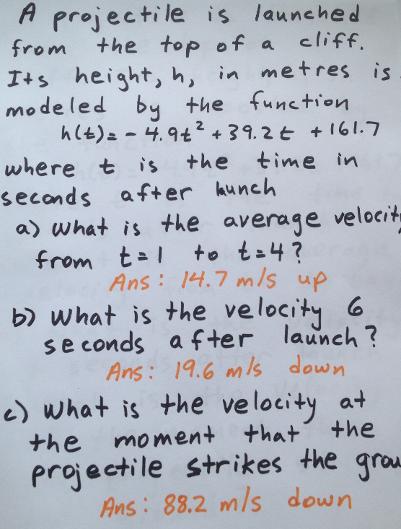 A projectile is launched
from the top of a cliff.
Its height, h, in metres is
modeled by the function
h(t) = - 4.9t² + 39.2t + 161.7
where t is the time in
seconds after launch
a) What is the average velocity
from t=1 to t=4?
Ans: 14.7 m/s up
b) What is the velocity 6
seconds after launch?
Ans: 19.6 m/s down
c) What is the velocity at
the moment that the
projectile strikes the grou
Ans: 88.2 m/s down